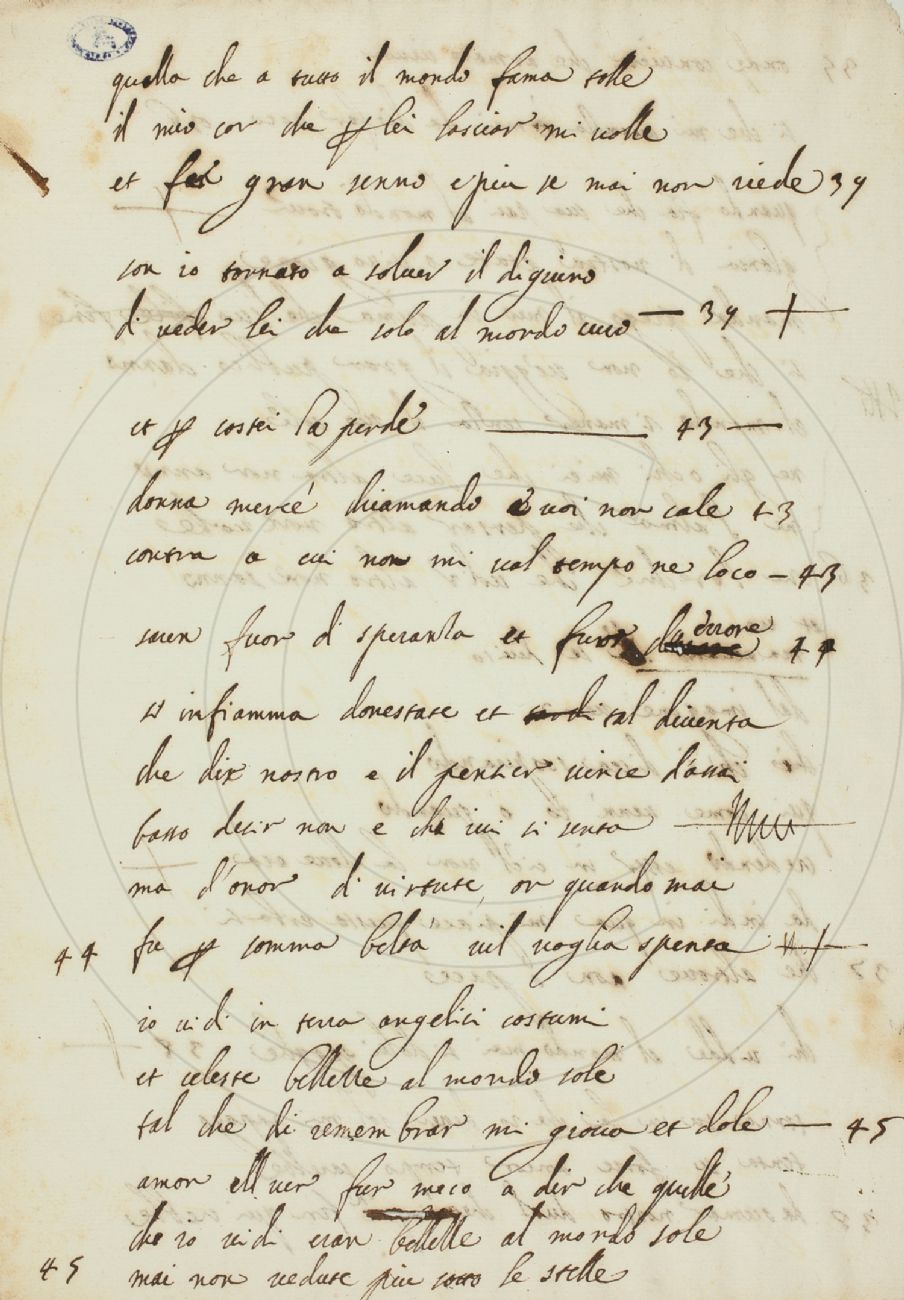 quella che a tutto il mondo fama tolle
il mio cor che ꝑ lei lasciar mi volle
et fe gran senno e piu se mai non riede 39
son io tornato a solver il digiuno
di veder lei che sola al mondo curo — 39 +
et ꝑ costei la perde — 43 —
donna mercé chiamando e voi non cale 43
contra a cui non mi val tempo ne loco — 43
sarem fuor di speranza et fuor d'errore 44
s'infiamma donestate et tal diventa
che dir nostro e il pensier vince d'assai
basso desir non è che ivi si senta
ma d'onor di virtute, or quando mai
44 fu ꝑ somma beltà vil voglia spenta +
io vidi in terra angelici costumi
et celeste bellezze al mondo sole
tal che di remembrar mi giova et dole — 45
amor e'l ver fur meco a dir che quelle
che io vidi eran bellezze al mondo sole
45 mai non vedute piu sotto le stelle